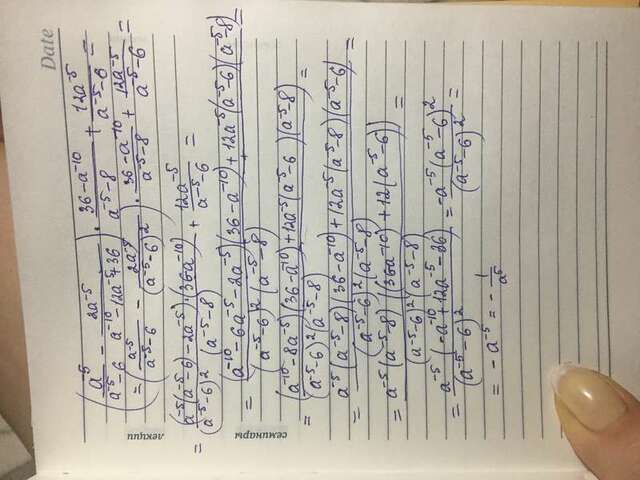 Date
(a⁻⁵/(a⁻⁵-6) - 2a⁻⁵/(a⁻¹⁰-12a⁻⁵+36)) · (36-a⁻¹⁰)/(a⁻⁵-8) + 12a⁻⁵/(a⁻⁵-6) =
= (a⁻⁵/(a⁻⁵-6) - 2a⁻⁵/(a⁻⁵-6)²) · (36-a⁻¹⁰)/(a⁻⁵-8) + 12a⁻⁵/(a⁻⁵-6)
= (a⁻⁵(a⁻⁵-6)-2a⁻⁵)·(36-a⁻¹⁰)/((a⁻⁵-6)²(a⁻⁵-8)) + 12a⁻⁵/(a⁻⁵-6) =
= ((a⁻¹⁰-6a⁻⁵-2a⁻⁵)(36-a⁻¹⁰)+12a⁻⁵(a⁻⁵-6)(a⁻⁵-8))/((a⁻⁵-6)²(a⁻⁵-8)) =
= ((a⁻¹⁰-8a⁻⁵)(36-a⁻¹⁰)+12a⁻⁵(a⁻⁵-6)(a⁻⁵-8))/((a⁻⁵-6)²(a⁻⁵-8)) =
= (a⁻⁵(a⁻⁵-8)(36-a⁻¹⁰)+12a⁻⁵(a⁻⁵-8)(a⁻⁵-6))/((a⁻⁵-6)²(a⁻⁵-8)) =
= a⁻⁵(a⁻⁵-8)(36-a⁻¹⁰)+12(a⁻⁵-6))/((a⁻⁵-6)²(a⁻⁵-8)) =
= a⁻⁵(-a⁻¹⁰+12a⁻⁵-36)/(a⁻⁵-6)² = -a⁻⁵(a⁻⁵-6)²/(a⁻⁵-6)² =
= -a⁻⁵ = -1/a⁵
лекции
семинары